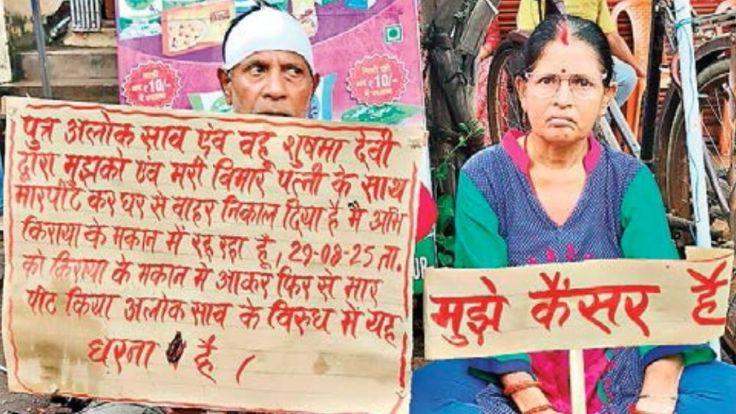 पुत्र अलोक साव एवं वहु शुषमा देवी
द्वारा मुझको एवं मेरी विमार पत्नी के साथ
मारपीट कर घर से वाहर निकाल दिया है मै अभि
किराया के मकान में रह रहा हूँ, 29-08-25 ता.
को किराया के मकान मे आकर फिर से मार
पीट किया अलोक साव के विरुध मे यह
धरना है।
मुझे कैंसर है
₹10/-
₹10/-